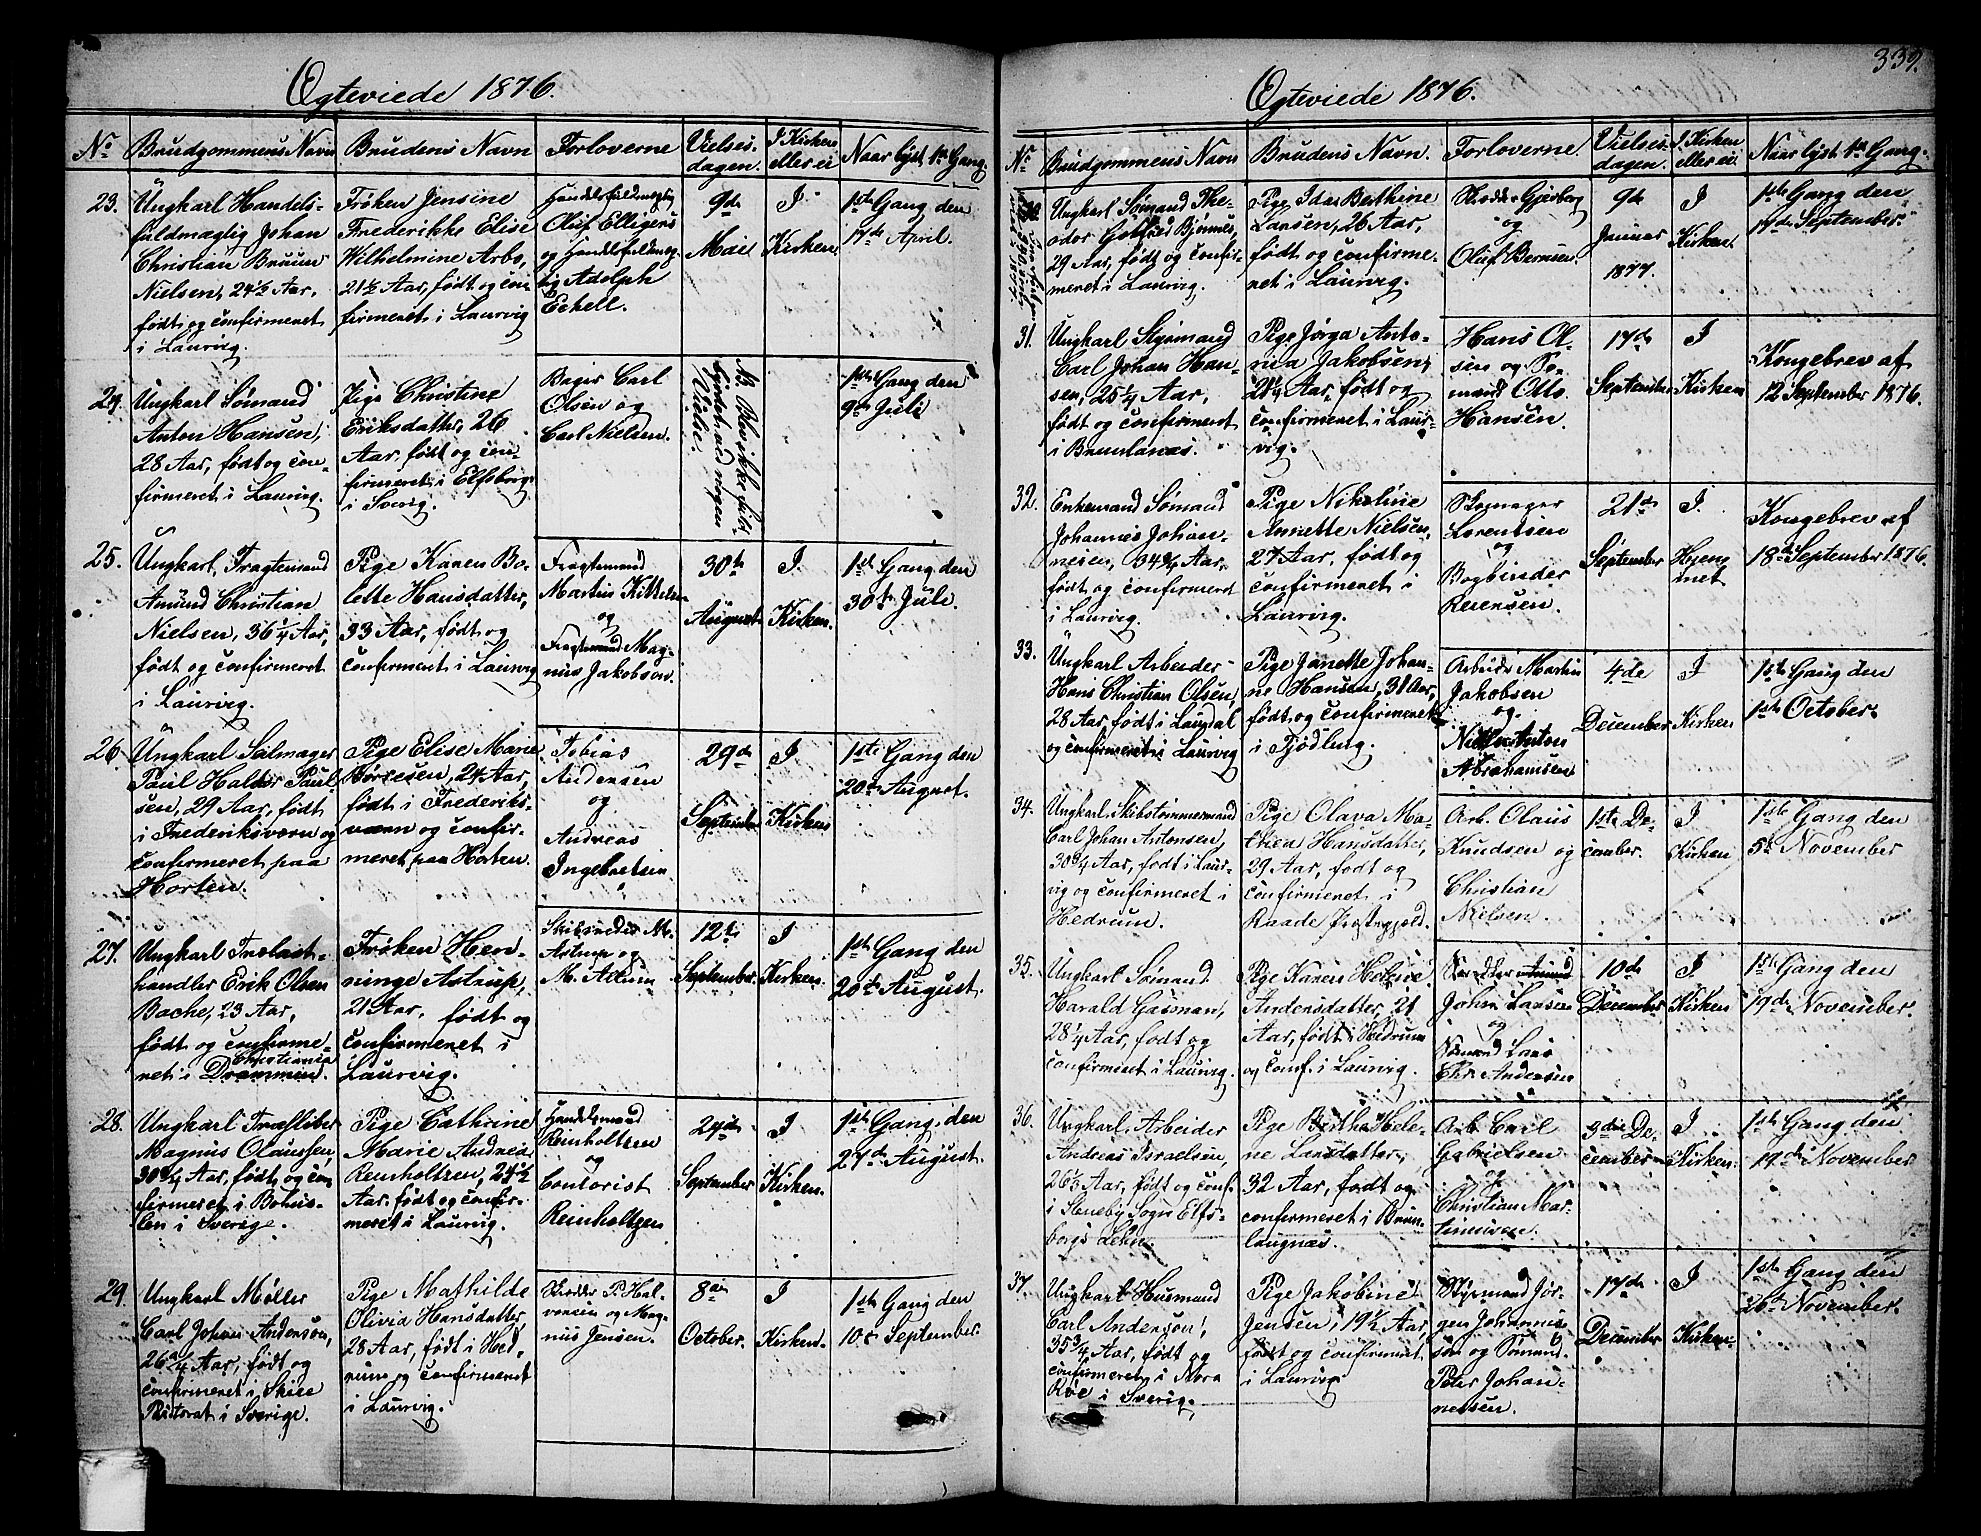 Ægteviede 1876.
No
Brudgommens Navn
Brudens Navn
Forloverne
Vielses-
dagen.
I Kirken
eller ei
Naar lyst 1ste Gang
23.
Ungkarl Handels-
fuldmægtig Johan
Christian Bruun
Nielsen, 24½ Aar,
født og confirmeret
i Laurvig.
Frøken Jensine
Frederikke Elise
Wilhelmine Arbo,
21½ Aar, født og con
firmeret i Laurvig
Handelsfuldmægtig
Oluf Elligers
og Handelsfuldmæg-
tig Adolph
Eckell.
9de
Mai
I
Kirken.
1ste Gang den
17de April.
24.
Ungkarl Sømand
Anton Hansen,
28 Aar, født og con-
firmeret i Laurvig.
Pige Christine
Eriksdatter, 26
Aar, født og con-
firmeret i Elfsborg
i Sverig.
Bager Carl
Olsen og
Carl Nielsen.
NB. Blev ikke fuld-
byrdet ved nogen
Vielse.
1ste Gang den
9de Juli
25.
Ungkarl, Fragtemand
Amund Christian
Nielsen, 36¼ Aar,
født og confirmeret
i Laurvig.
Pige Karen Bo-
lette Hansdatter,
33 Aar, født og
confirmeret i Laurvig
Fragtemand
Martin Kittelsen
og
Fragtemand Mag-
nus Jakobsen.
30te
August
I
Kirken.
1ste Gang den
30te Juli.
26
Ungkarl Salmager
Paul Halder Paul
sen, 29 Aar, født
i Frederiksværn og
confirmeret paa
Horten.
Pige Elise Marie
Børresen, 24 Aar,
født i Frederiks-
værn og confir-
meret paa Horten.
Tobias
Andersen
og
Andreas
Ingebretsen
29de
September
I
Kirken
1ste Gang den
20de August.
27.
Ungkarl Trælast-
handler Erik Olsen
Bache, 23 Aar,
født og confirme-
Christiania
ret i Drammen.
Frøken Hen-
ninge Astrup,
21 Aar, født og
confirmeret i
Laurvig.
Skibsreder M.
Astrup og
M. Allum
12te
September.
I
Kirken.
1ste Gang den
20de August.
28.
Ungkarl Træsliber
Magnus Olaussen,
30¾ Aar, født og con
firmeret i Bohus-
len i Sverige.
Pige Cathrine
Marie Andrea
Reinholtzen, 24½
Aar, født og confir-
meret i Laurvig.
Handelsmand
Reinholtzen
og
Contorist
Reinholtzen
24de
September
I
Kirken.
1ste Gang den
27de August.
29.
Ungkarl Møller
Carl Johan Anderson,
26¾ Aar, født og
confirmeret i Skee
Pastorat i Sverige.
Pige Mathilde
Olivia Hansdatter,
28 Aar, født i Hed-
rum og confirmeret
i Laurvig.
Skredder P. Hal-
vorsen og Mag-
nus Jensen.
8de
October.
I
Kirken.
1ste Gang den
10de September.
339.
Ægteviede 1876.
No
Brudgommens Navn
Brudens Navn.
Forloverne.
Vielses-
dagen.
I Kirken
eller ei
Naar lyst 1ste Gang.
30.
Ungkarl Sømand The-
odor Gotfried Bjønnes,
29 Aar, født og confir-
meret i Laurvig.
Pige Ida Berthine
Larsen, 26 Aar,
født og confirme-
ret i Laurvig.
Skredder Gjerberg
og
Oluf Berntsen.
9de
Januar
1877.
I
Kirken.
1ste Gang den
17de September.
31.
Ungkarl Styrmand
Carl Johan Han-
sen, 25¼ Aar,
født og confirmeret
i Brunlanæs.
Pige Jørga Anto-
nia Jakobsen,
21¼ Aar, født og
confirmeret i Laur-
vig.
Hans Ol-
sen og Sø-
mand Otto
Hansen.
17de
September
I
Kirken
Kongebrev af
12 September 1876.
32.
Enkemand Sømand
Johannes Johan-
nesen, 34¾ Aar,
født og confirmeret
i Laurvig.
Pige Nikoline
Annette Nielsen,
27 Aar, født og
confirmeret i
Laurvig.
Skomager
Lorentsen
og
Bogbinder
Evensen.
21de
September
I
Hjem-
met
Kongebrev af
18de September 1876.
33.
Ungkarl Arbeider
Hans Christian Olsen,
28 Aar, født i Laugdal
og confirmeret i Laurvig
Pige Janette Johan-
ne Hansen, 31 Aar,
født og confirmeret
i Tjødling.
Arbeider Martin
Jakobsen
og
Anton
Abrahamsen
4de
December
I
Kirken
1ste Gang den
1ste October.
34.
Ungkarl Skibstømmermand
Carl Johan Antonsen,
30¾ Aar, født i Laur-
vig og confirmeret i
Hedrum.
Pige Olava Ma-
thea Hansdatter,
29 Aar, født og
confirmeret i
Raade Præstegjeld.
Arb. Olaus
Knudsen og
Christian
Nielsen.
1ste De-
cember.
I
Kirken
1ste Gang den
5te November
35.
Ungkarl Sømand
Harald Gasman,
28¼ Aar, født og
confirmeret i Laurvig.
Pige Karen Helene
Andersdatter, 21
Aar, født i Hedrum
og conf. i Laurvig.
Johan Larsen
og
Sømand Lars
Chr. Andersen
10de
December
I
Kirken
1ste Gang den
19de November.
36.
Ungkarl Arbeider
Andreas Israelsen,
26½ Aar, født og conf.
i Haneby Sogn Elfs-
borgs Lehn.
Pige Bertha Hele-
ne Larsdatter,
32 Aar, født og
confirmeret i Brun-
laugnæs.
Arb. Carl
Gabrielsen
og
Christian Mar-
tinusen.
3die De-
cember
I
Kirken.
1ste Gang den
19de November
37.
Ungkarl Husmand
Carl Anderson,
35¾ Aar, født og
confirmeret i Nora
Røe i Sverig.
Pige Jakobine
Jensen, 19½ Aar,
født og confirmeret
i Laurvig
Styrmand Jør-
gen Johannes-
sen og Sømand
Peter Johan-
nessen.
17de
December
I
Kirken.
1ste Gang den
26de November.